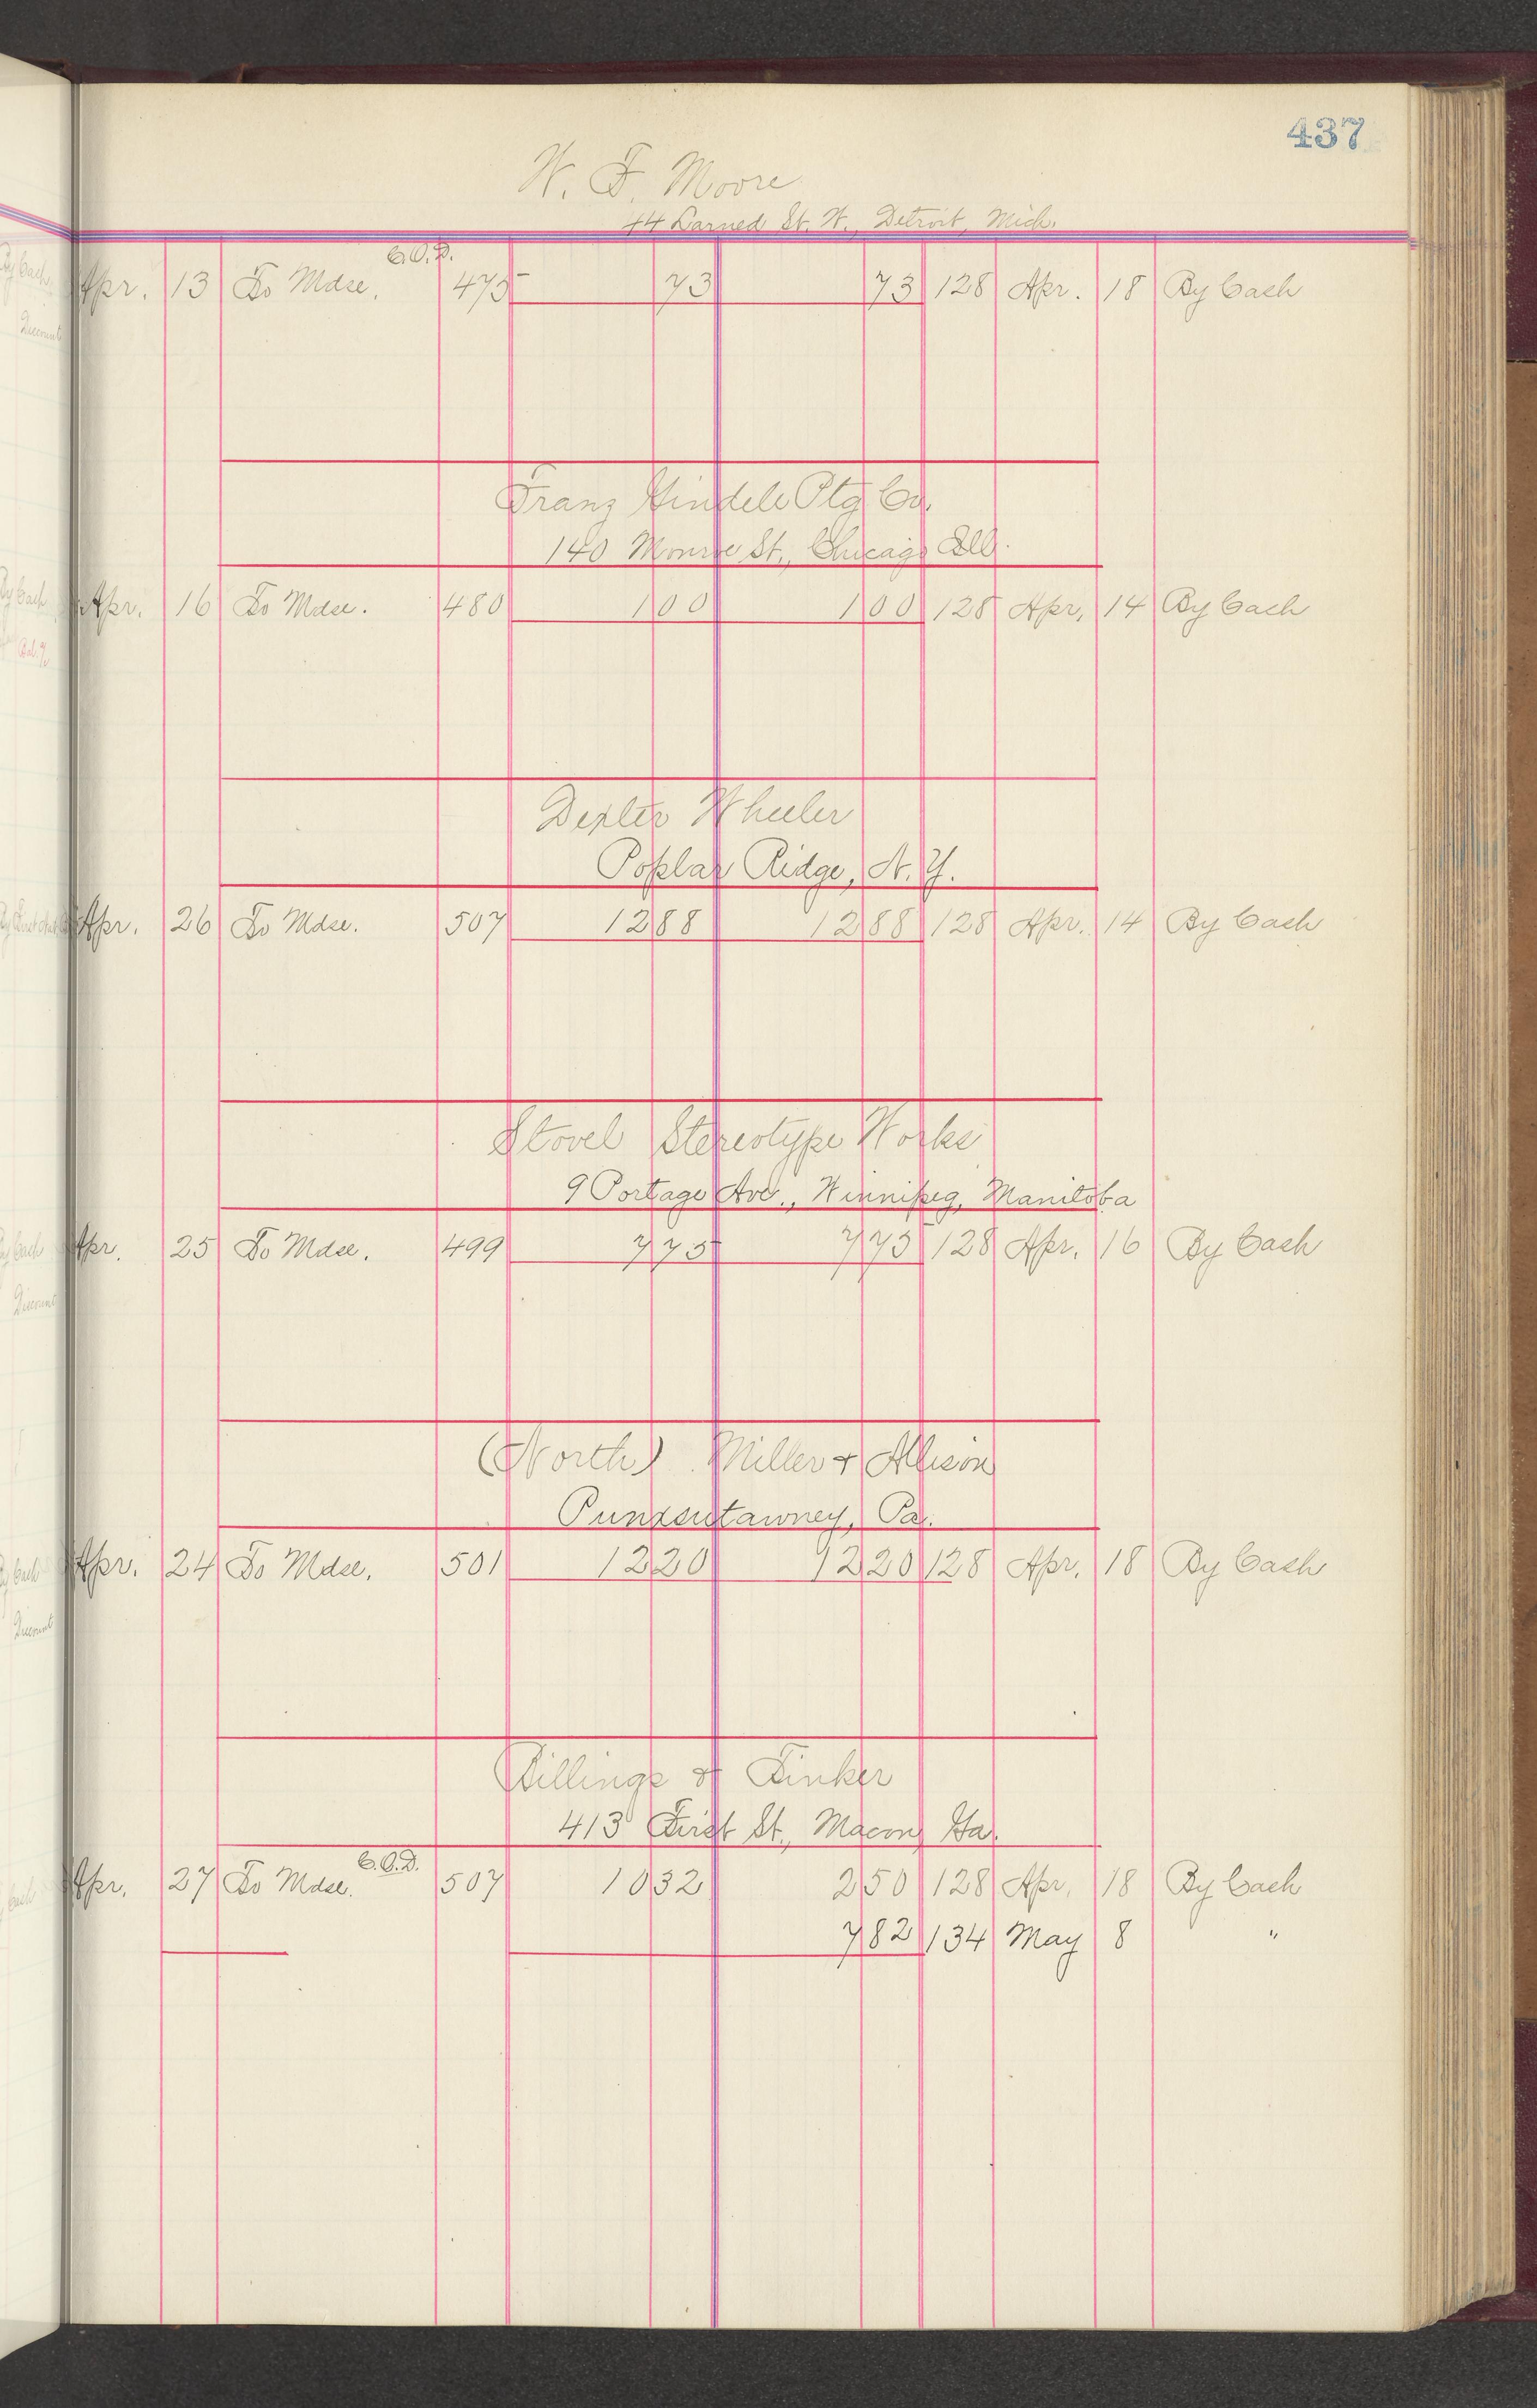 437
W. F. Moore
44 Larned St. W., Detroit, Mich.
C.O.D.
Apr. 13 To Mdse. 475 73 73 128 Apr. 18 By Cash
Franz Gindele Ptg Co.
140 Monroe St., Chicago Ill.
Apr. 16 To Mdse. 480 100 100 128 Apr. 14 By Cash
Dexter Wheeler
Poplar Ridge, N.Y.
Apr. 26 To Mdse. 507 1288 1288 128 Apr. 14 By Cash
Stovel Stereotype Works
9 Portage Ave., Winnipeg, Manitoba
Apr. 25 To Mdse. 499 775 775 128 Apr. 16 By Cash
(North) Miller & Allison
Punxsutawney, Pa.
Apr. 24 To Mdse. 501 1220 1220 128 Apr. 18 By Cash
Billings & Tinker
413 First St., Macon, Ga.
C.O.D.
Apr. 27 To Mdse. 507 1032 250 128 Apr. 18 By Cash
782 134 May 8 "